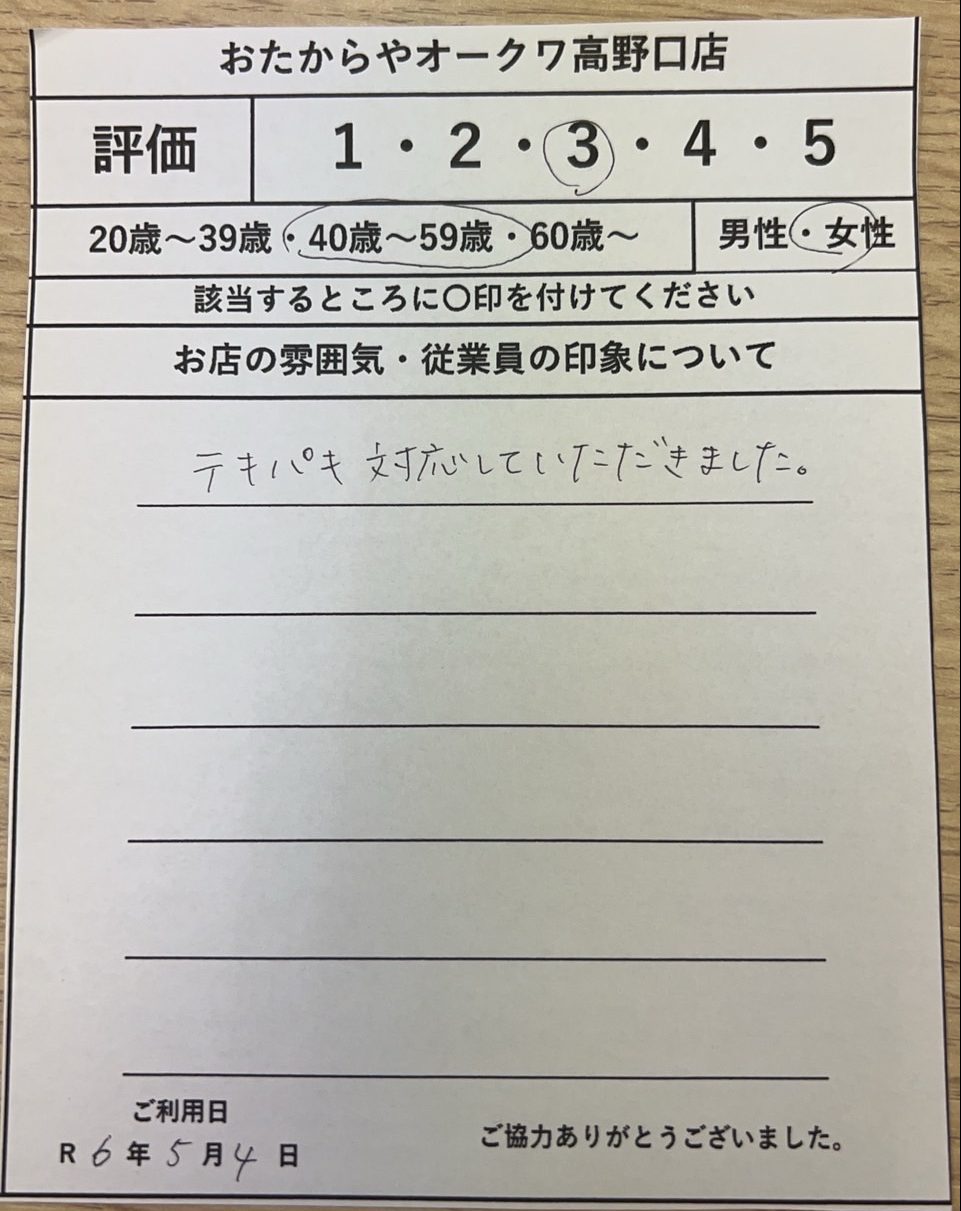 おたからやオークワ高野口店
評価 1・2・3・4・5
20歳～39歳・40歳～59歳・60歳～ 男性・女性
該当するところに〇印を付けてください
お店の雰囲気・従業員の印象について
テキパキ対応していただきました。
ご利用日
R6年5月4日
ご協力ありがとうございました。